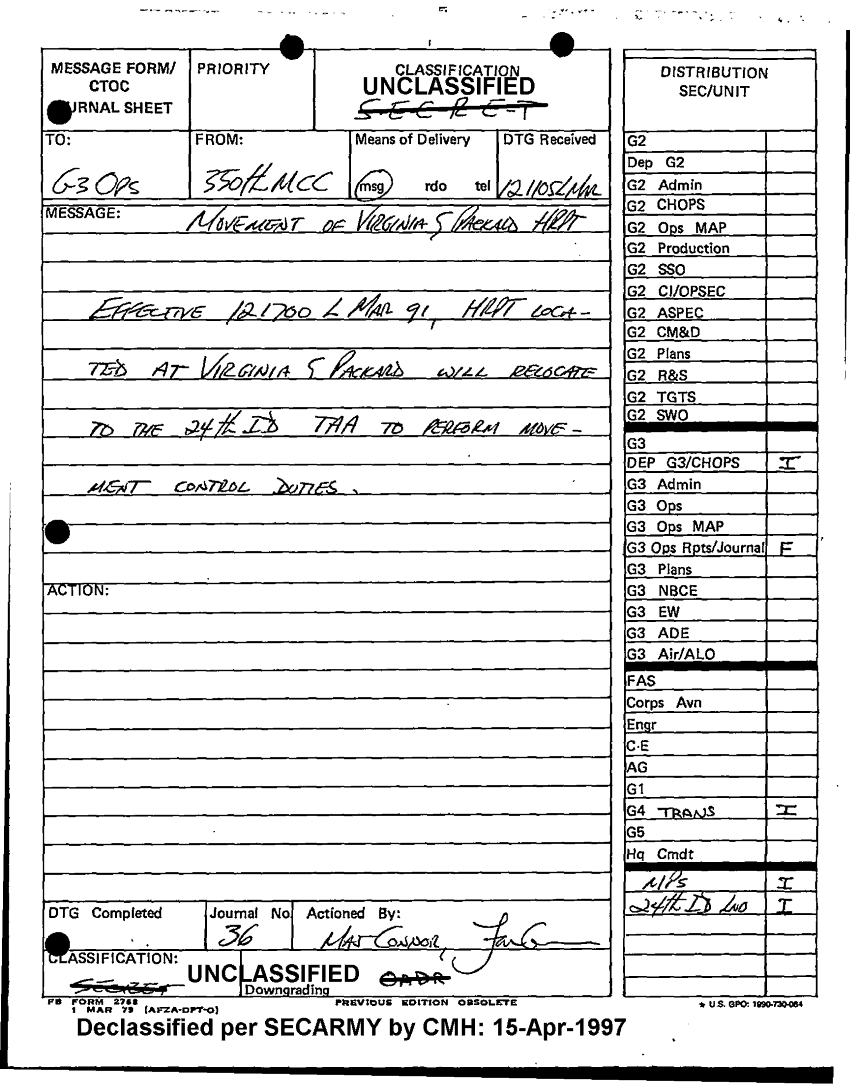 MESSAGE FORM/
CTOC
JOURNAL SHEET
PRIORITY
CLASSIFICATION
UNCLASSIFIED
S-E-C-R-E-T
TO:
G3 OPS
FROM:
350th MCC
Means of Delivery
msg rdo tel
DTG Received
121105L MAR
MESSAGE: MOVEMENT OF VIRGINIA & PACKARD HRPT
EFFECTIVE 121700 L MAR 91, HRPT LOCA-
TED AT VIRGINIA & PACKARD WILL RELOCATE
TO THE 24th ID TAA TO PERFORM MOVE-
MENT CONTROL DUTIES.
ACTION:
DTG Completed
Journal No
36
Actioned By:
MAJ CONNOR,
CLASSIFICATION:
SECRET
UNCLASSIFIED
OADR
Downgrading
FB FORM 2768
1 MAR 79 (AFZA-DPT-O)
PREVIOUS EDITION OBSOLETE
DISTRIBUTION
SEC/UNIT
G2
Dep G2
G2 Admin
G2 CHOPS
G2 Ops MAP
G2 Production
G2 SSO
G2 CI/OPSEC
G2 ASPEC
G2 CM&D
G2 Plans
G2 R&S
G2 TGTS
G2 SWO
G3
DEP G3/CHOPS I
G3 Admin
G3 Ops
G3 Ops MAP
G3 Ops Rpts/Journal F
G3 Plans
G3 NBCE
G3 EW
G3 ADE
G3 Air/ALO
FAS
Corps Avn
Engr
C-E
AG
G1
G4 TRANS I
G5
Hq Cmdt
MPs I
24th ID LNO I
* U.S. GPO: 1990-730-084
Declassified per SECARMY by CMH: 15-Apr-1997